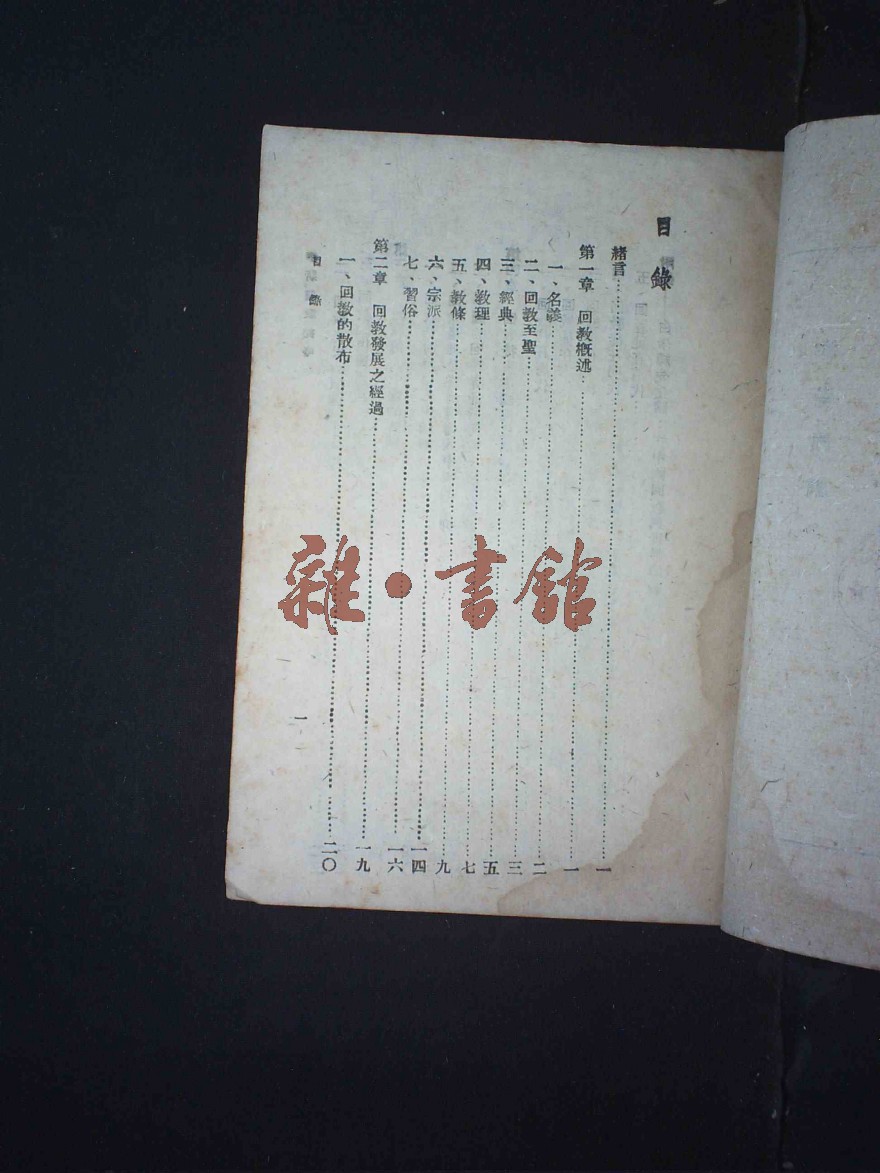 目錄
緒言……一
第一章 回教概述……一
一、名義……二
二、回教至聖……三
三、經典……五
四、教理……七
五、教條……九
六、宗派……一四
七、習俗……一六
第二章 回教發展之經過……一九
一、回教的散布……二〇
目錄
一
雜·書館